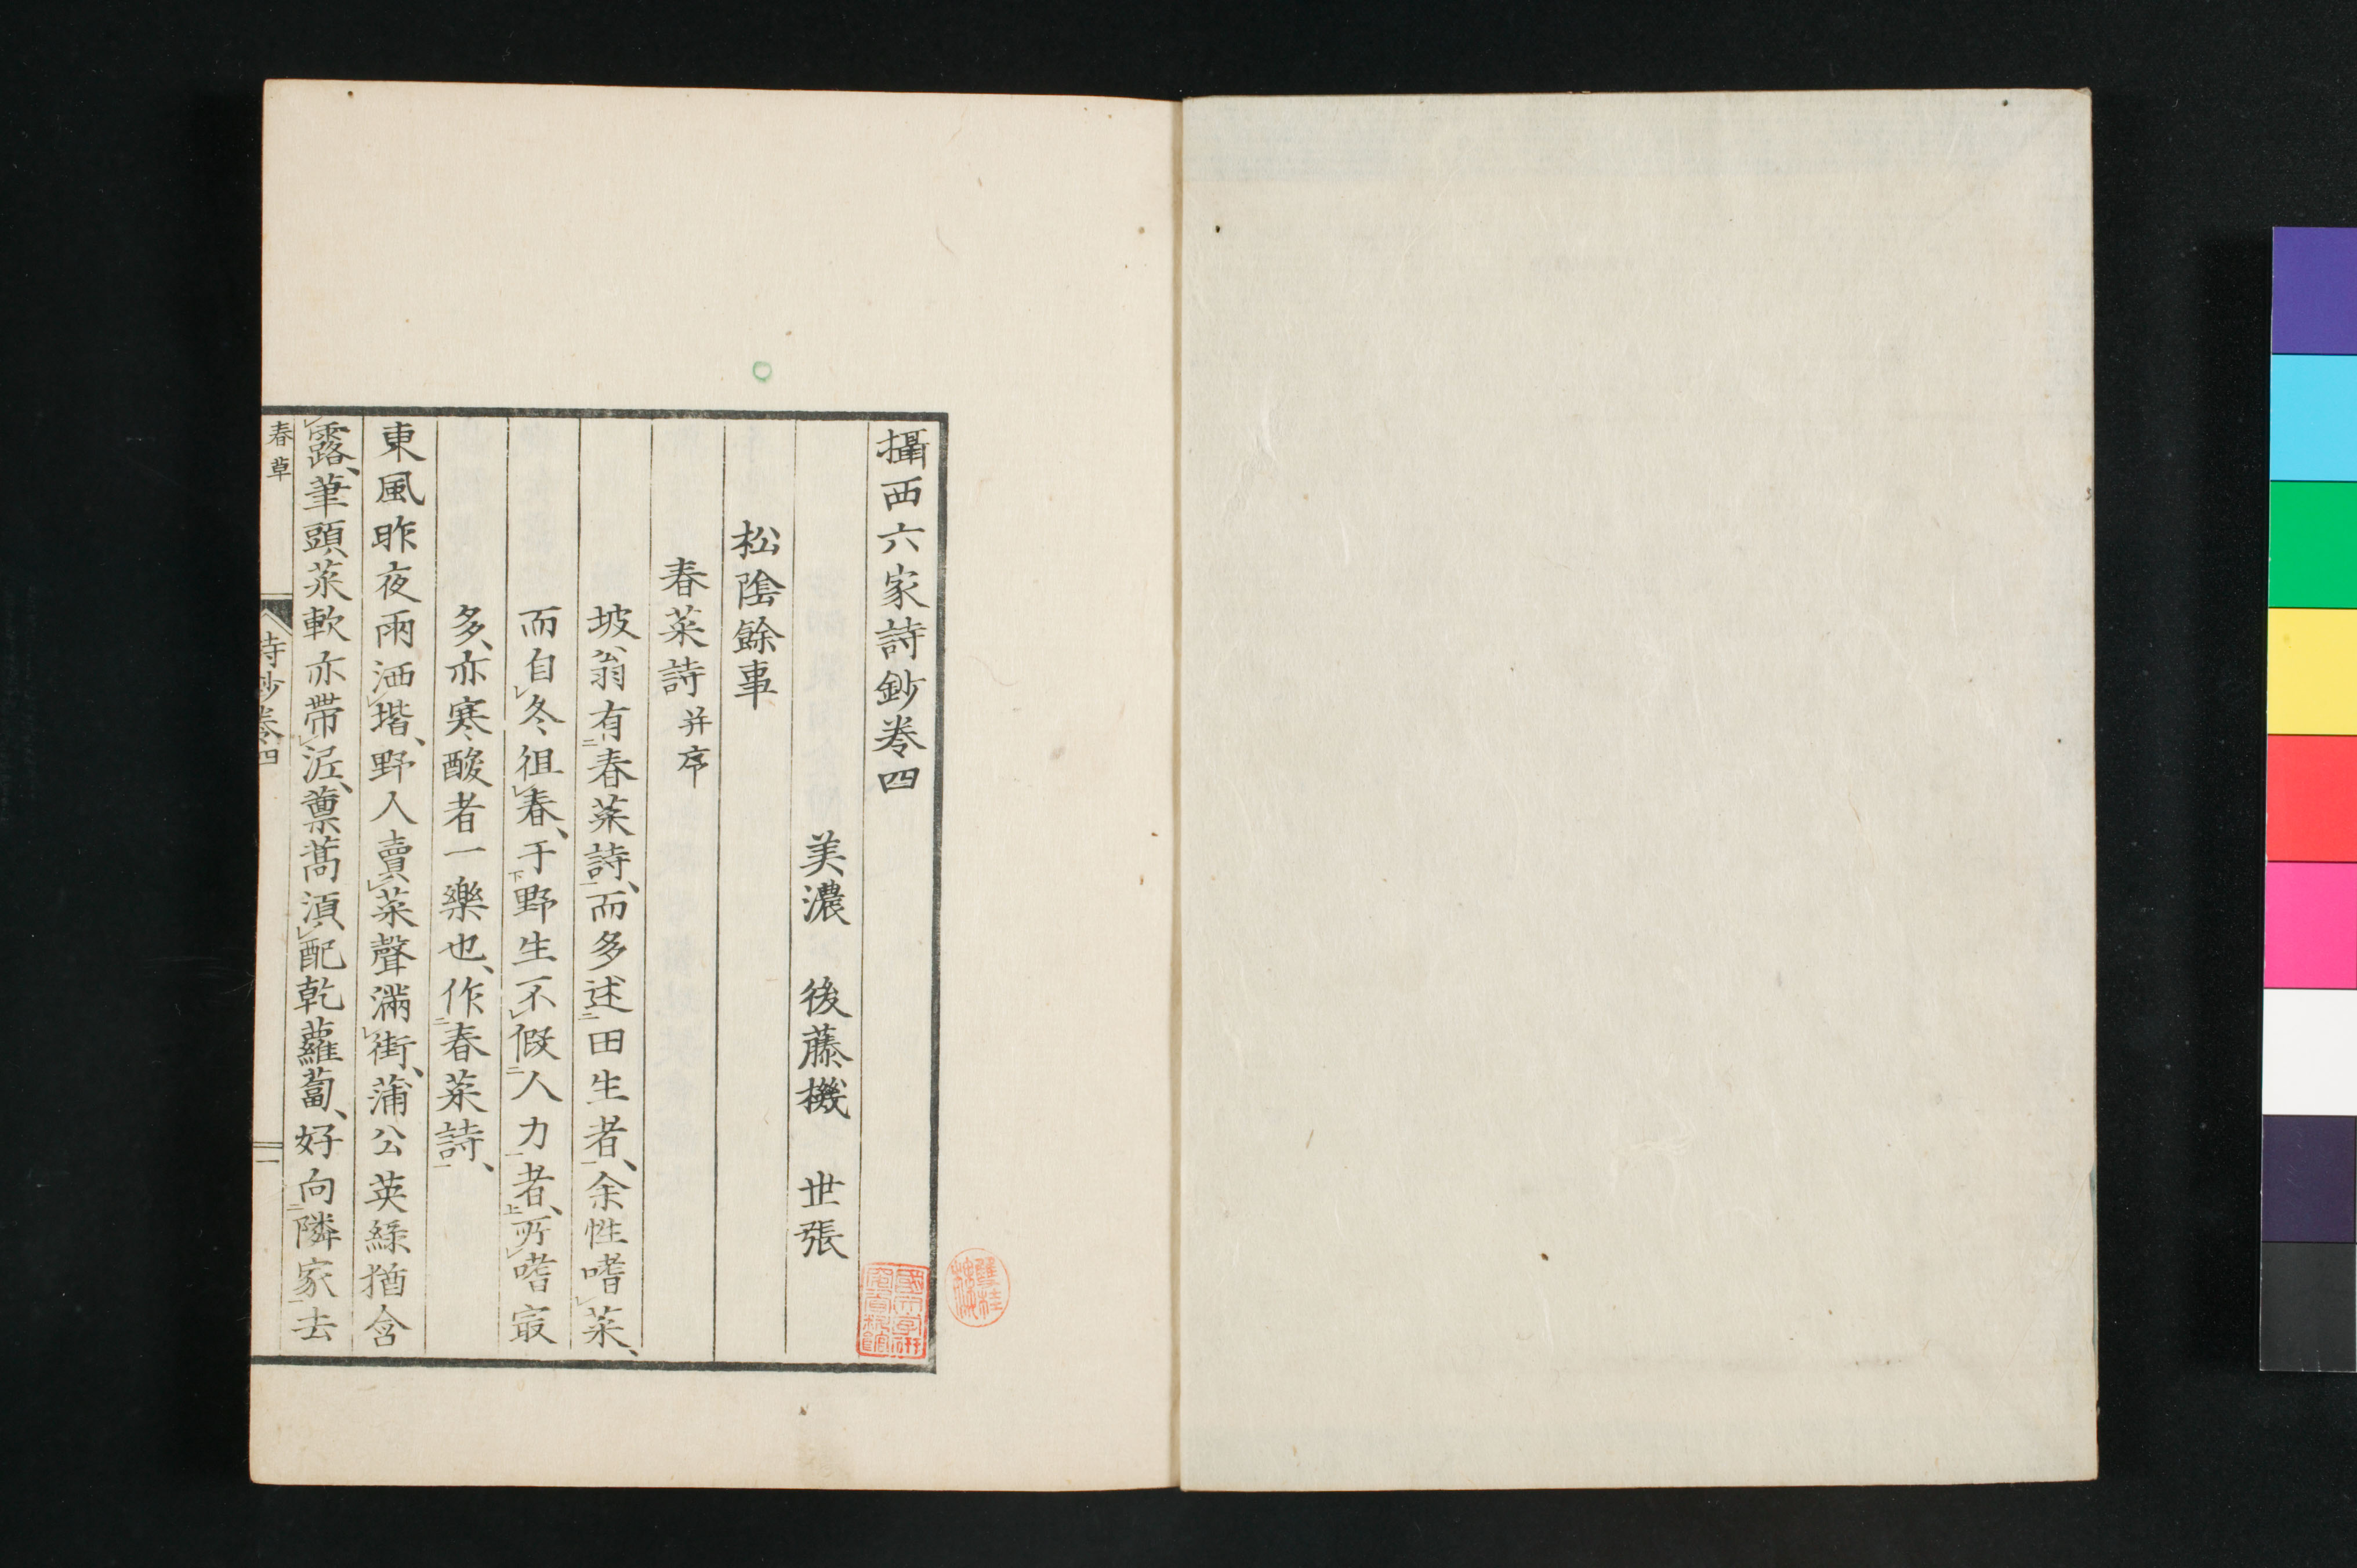 攝西六家詩鈔卷四
美濃 後藤機 世張
松陰餘事
春菜詩 并序
坡翁有二春菜詩一、而多述二田生者一、余性嗜レ菜、
而自レ冬徂レ春、于下野生不レ假二人力一者上、所レ嗜寂
多、亦寒酸者一樂也、作二春菜詩一、
東風昨夜雨洒レ堦、野人賣レ菜聲滿レ街、蒲公英綠猶含
レ露、筆頭菜軟亦帶レ泥、藁蒿須レ配乾蘿蔔、好向二隣家一去
春草
詩鈔卷四
一